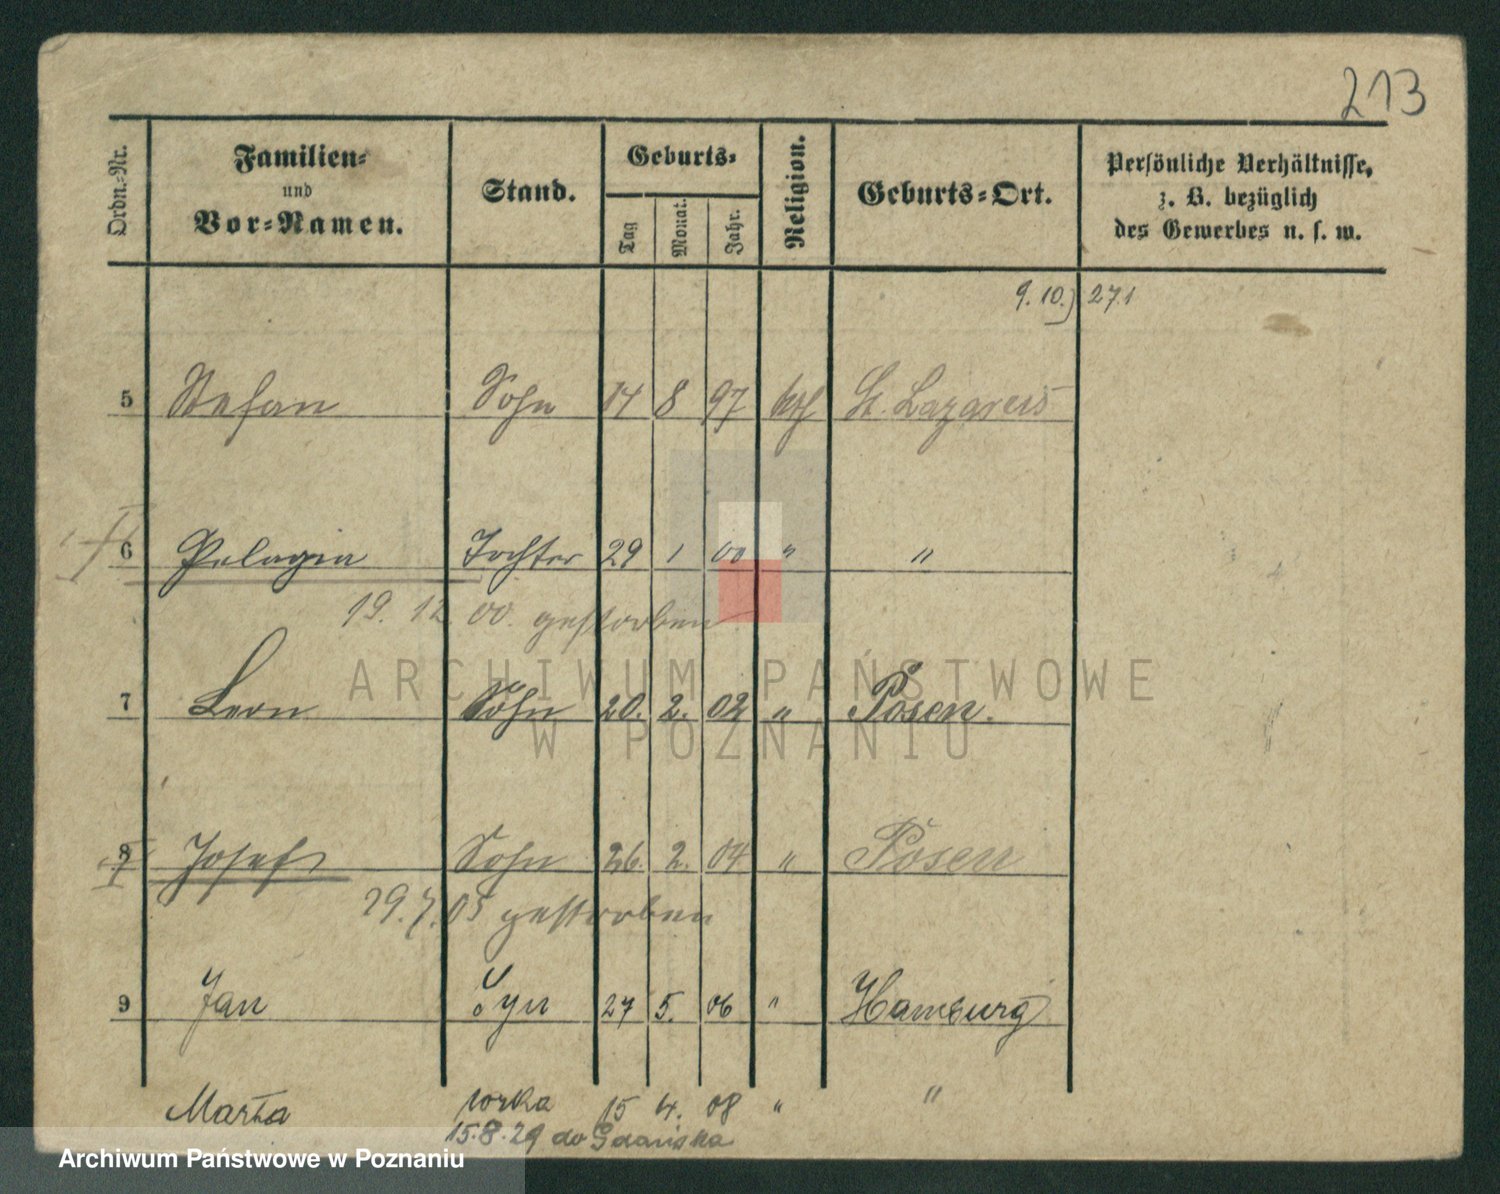 213
Ordn.-Nr.
Familien-
und
Vor-Namen.
Stand.
Geburts-
Tag
Monat.
Jahr.
Religion.
Geburts-Ort.
Persönliche Verhältnisse,
z. B. bezüglich
des Gewerbes u. s. w.
9. 10. 27.1
5 Stefan Sohn 14 8 97 kth St. Lazarus
6 Pelagia Tochter 29 1 00 " "
19. 12 00. gestorben
7 Leon Sohn 20. 2. 02 " Posen.
8 Josef Sohn 26. 2. 04 " Posen
29. 7. 05 gestorben
9 Jan Syn 27 5. 06 " Hamburg
Marta corka 15 4. 08 " "
15.8.29 do Gdańska
ARCHIWUM PAŃSTWOWE
W POZNANIU
Archiwum Państwowe w Poznaniu